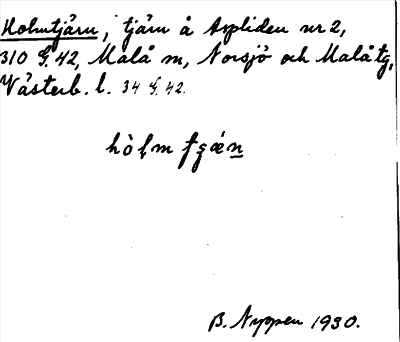 Holmtjärn, tjärn å Aspliden nr 2,
310 G. 42, Malå sn, Norsjö och Malå tg,
Västerb. l. 34 G. 42.
B. Nyppen 1930.